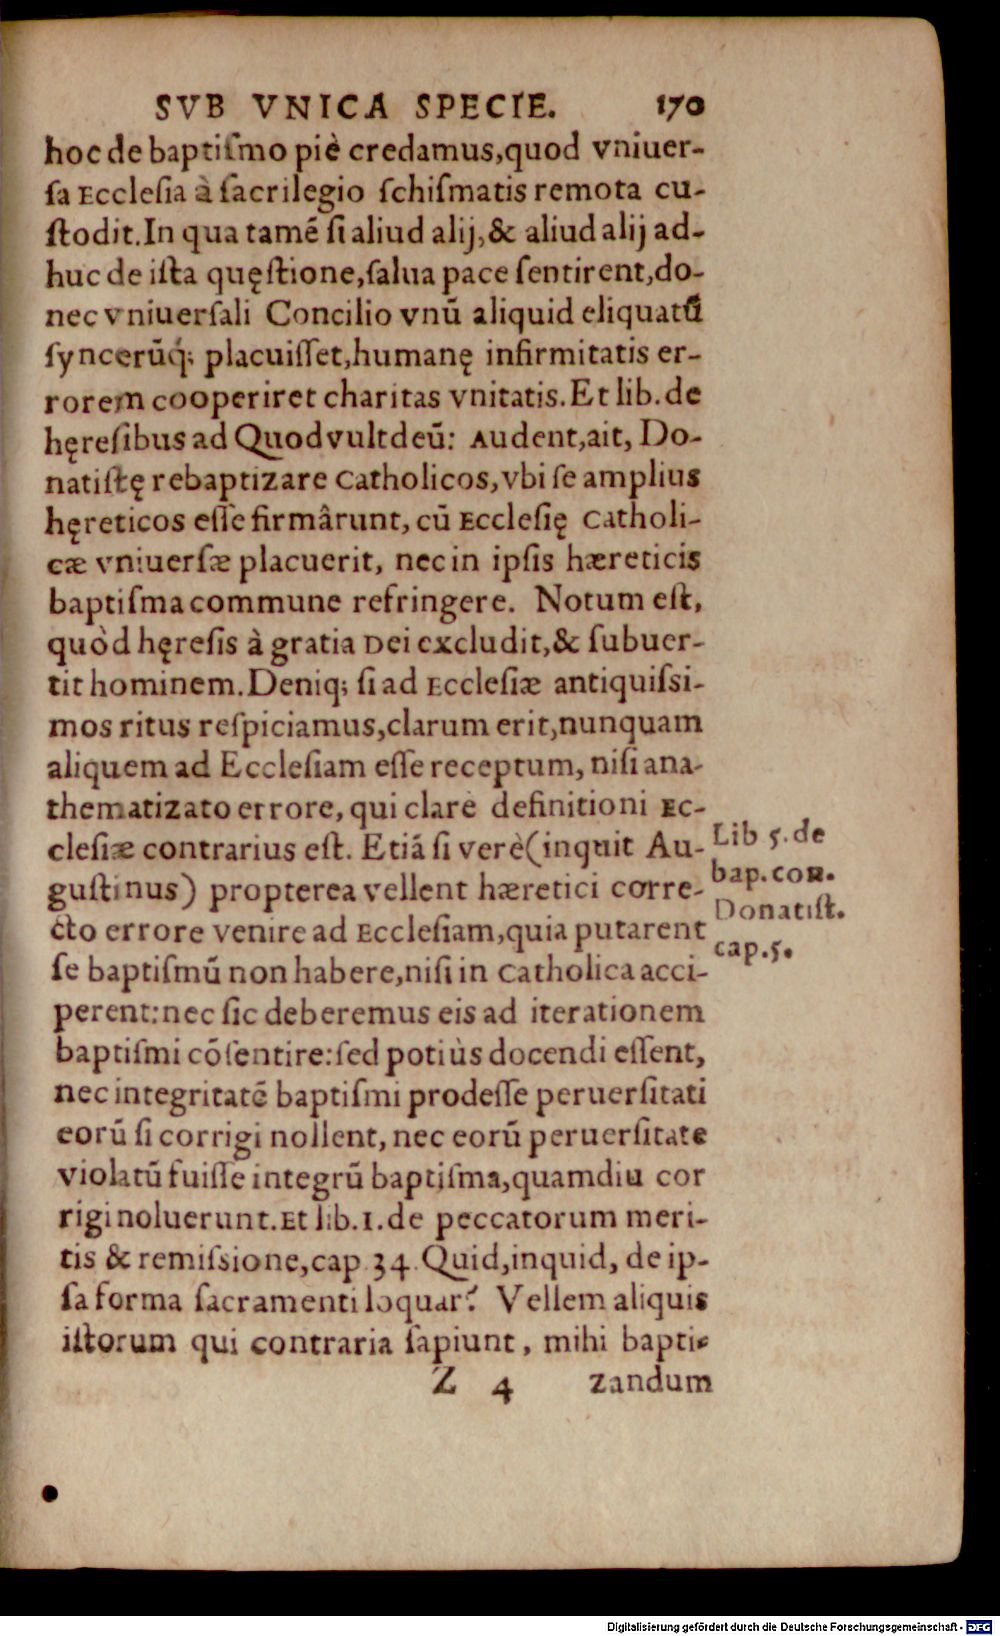 SVB VNICA SPECIE. 170
hoc de baptiſmo piè credamus,quod vniuer-
ſa Eccleſia à ſacrilegio ſchiſmatis remota cu-
ſtodit.In qua tamẽ ſi aliud alij,& aliud alij ad-
huc de iſta quęſtione,ſalua pace ſentirent,do-
nec vniuerſali Concilio vnũ aliquid eliquatũ
ſyncerũq́; placuiſſet,humanę infirmitatis er-
rorem cooperiret charitas vnitatis.Et lib.de
hęreſibus ad Quodvultdeũ: Audent,ait, Do-
natiſtę rebaptizare Catholicos,vbi ſe amplius
hęreticos eſſe firmârunt, cũ Eccleſię Catholi-
cæ vniuerſæ placuerit, nec in ipſis hæreticis
baptiſma commune refringere. Notum eſt,
quòd hęreſis à gratia Dei excludit,& ſubuer-
tit hominem.Deniq; ſi ad Eccleſiæ antiquiſsi-
mos ritus reſpiciamus,clarum erit,nunquam
aliquem ad Eccleſiam eſſe receptum, niſi ana-
thematizato errore, qui clarè definitioni Ec-
cleſiæ contrarius eſt. Etiã ſi verè(inquit Au-
guſtinus) propterea vellent hæretici corre-
cto errore venire ad Eccleſiam,quia putarent
ſe baptiſmũ non habere,niſi in Catholica acci-
perent:nec ſic deberemus eis ad iterationem
baptiſmi cõſentire:ſed potiùs docendi eſſent,
nec integritatẽ baptiſmi prodeſſe peruerſitati
eorũ ſi corrigi nollent, nec eorũ peruerſitate
violatũ fuiſſe integrũ baptiſma,quamdiu cor
rigi noluerunt.Et lib.1.de peccatorum meri-
tis & remiſsione,cap.34.Quid,inquid, de ip-
ſa forma ſacramenti loquar? Vellem aliquis
iſtorum qui contraria ſapiunt, mihi bapti-
Z 4 zandum
Lib 5.de
bap.con.
Donatiſt.
cap.5.
Digitalisierung gefördert durch die Deutsche Forschungsgemeinschaft - DFG